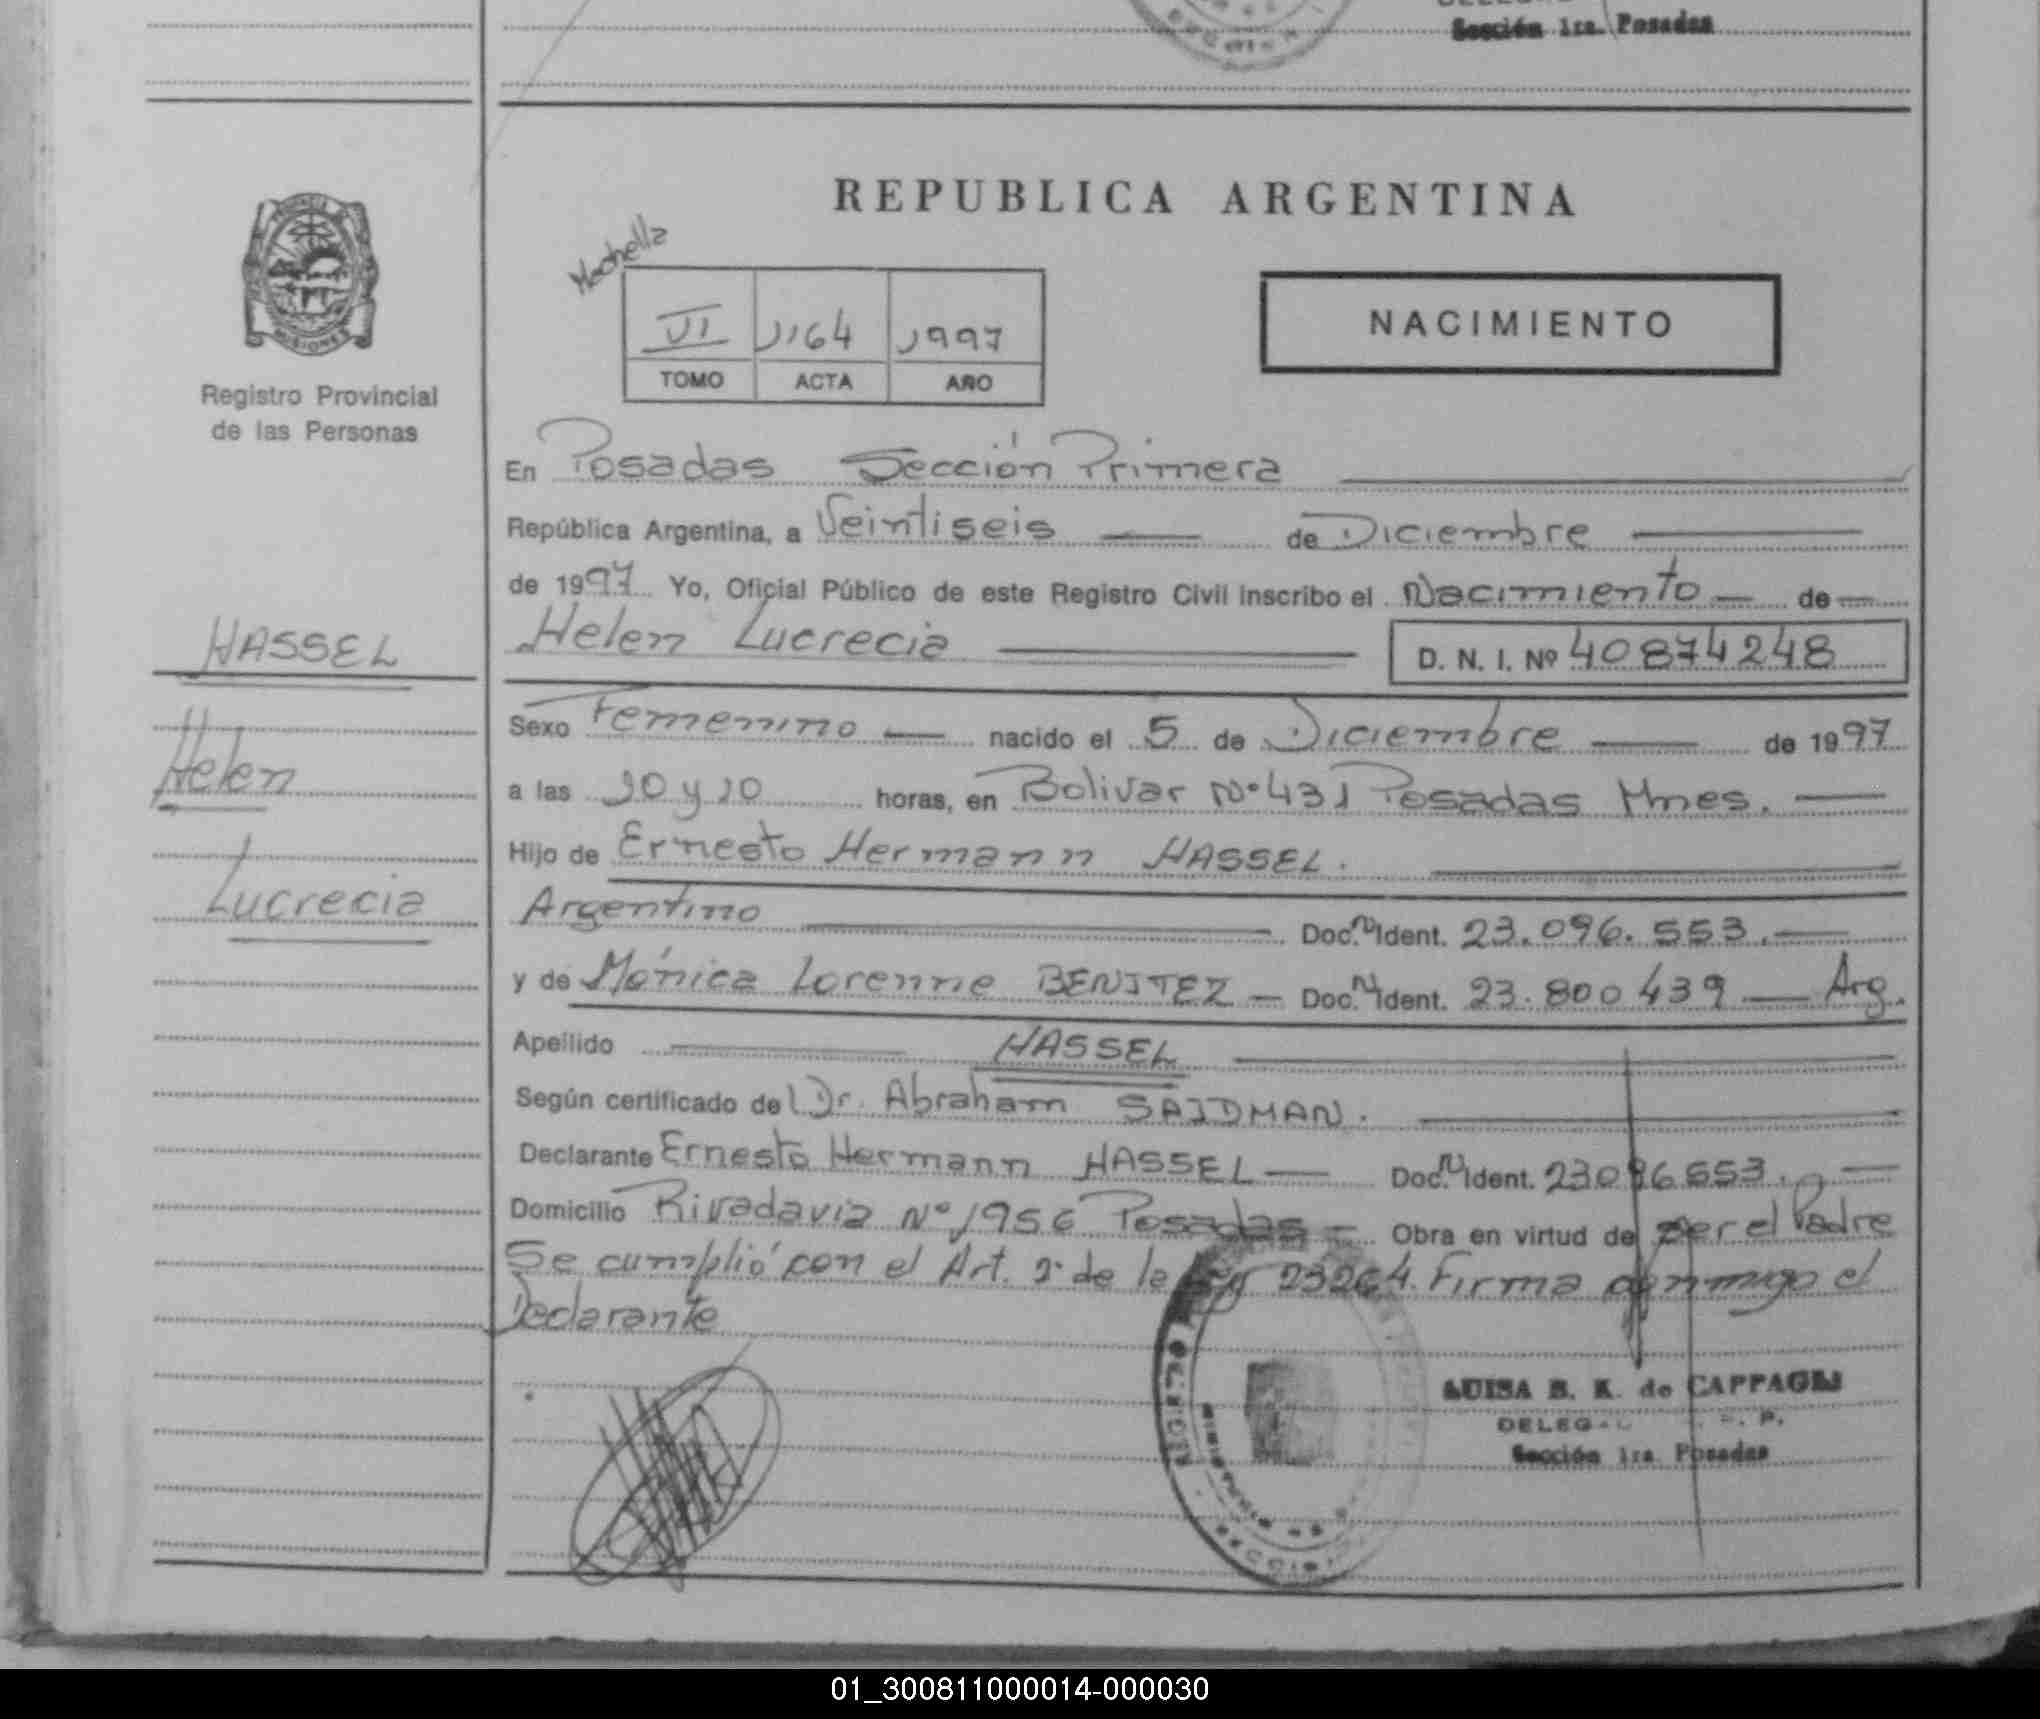 Sección 1ra. Posadas
REPUBLICA ARGENTINA
VI 1164 1997
TOMO ACTA AÑO
NACIMIENTO
PROVINCIA DE
MISIONES
Registro Provincial
de las Personas
En Posadas Sección Primera
República Argentina, a Veintiseis de Diciembre
de 1997 Yo, Oficial Público de este Registro Civil inscribo el Nacimiento de
Helen Lucrecia D. N. I. Nº 40874248
HASSEL
Helen
Lucrecia
Sexo Femenino nacido el 5 de Diciembre de 1997
a las 10 y 10 horas, en Bolivar Nº 431 Posadas Mnes.
Hijo de Ernesto Hermann HASSEL.
Argentino Doc. N Ident. 23.096.553.
y de Mónica Lorenne BENITEZ Doc. N Ident. 23.800439 Arg.
Apellido HASSEL
Según certificado de Dr. Abraham SAIDMAN.
Declarante Ernesto Hermann HASSEL Doc. N Ident. 23096553.
Domicilio Rivadavia Nº 1956 Posadas Obra en virtud de ser el Padre
Se cumplió con el Art. 2 de le Ley 23264. Firma conmigo el
Declarante
LUISA B. K. de
Sección 1ra. Posadas
01_300811000014-000030